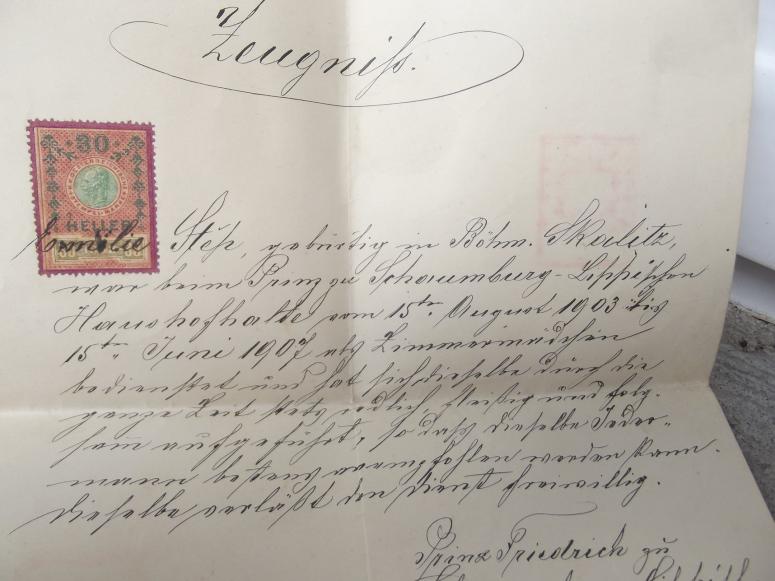 Zeugniß.
30
HELLER
Emilie Štěp, gebürtig in Böhm. Skalitz,
war beim Prinz zu Schaumburg-Lippischen
Haushofhalte vom 15ten August 1903 bis
15ten Juni 1907 als Zimmermädchen
bedienstet und hat sich dieselbe durch die
ganze Zeit stets redlich fleißig und folg-
sam aufgeführt, so daß dieselbe Jeder-
mann bestens anempfohlen werden kann.
Dieselbe verläßt den Dienst freiwillig.
Prinz Friedrich zu